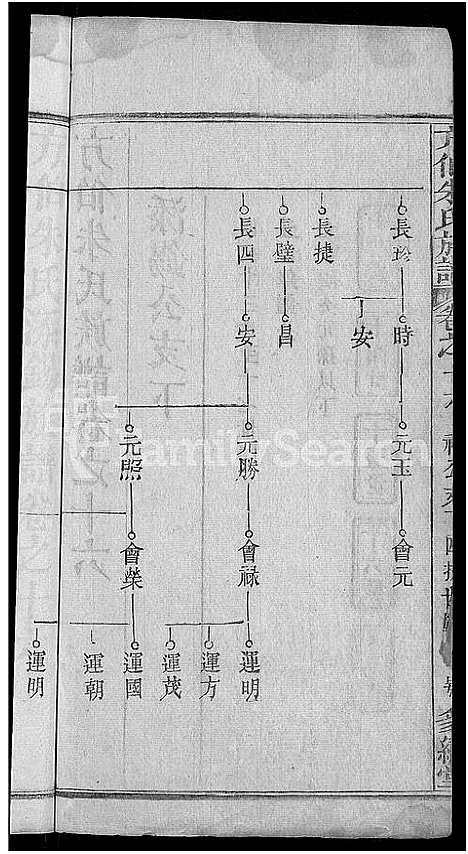 長珍
時
元玉
會元
丁安
長捷
長壁
昌
長四
安
元勝
會祿
運明
運方
運茂
元照
會榮
運國
運朝
運明
方伯朱氏族譜
FamilySearch